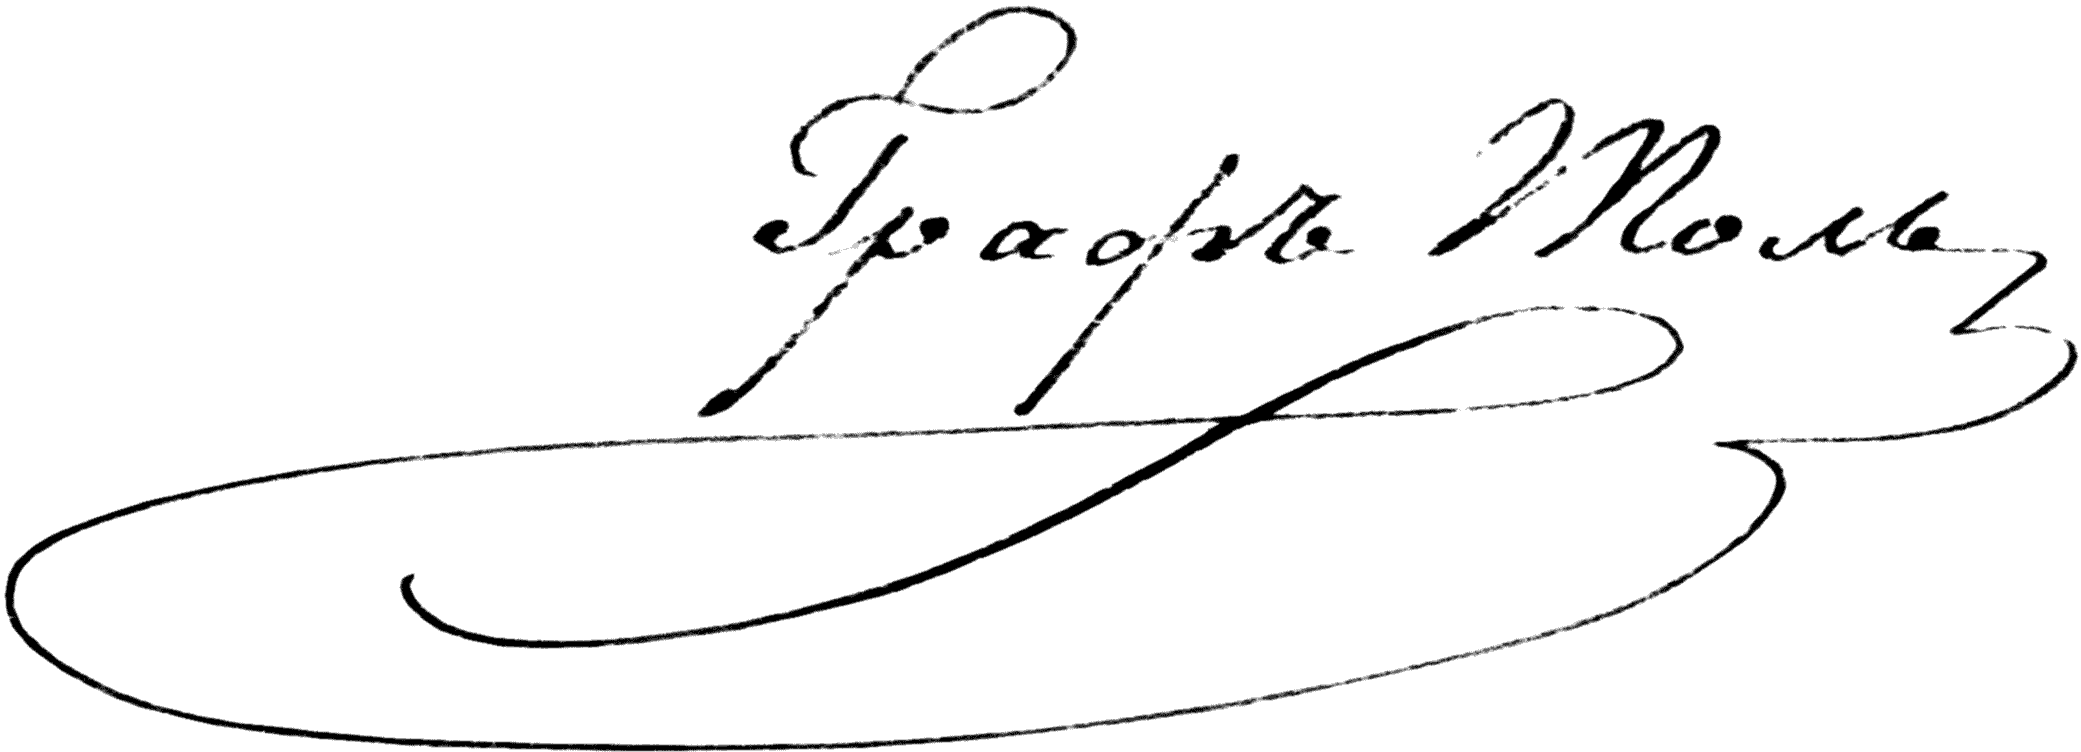 Графъ Толь